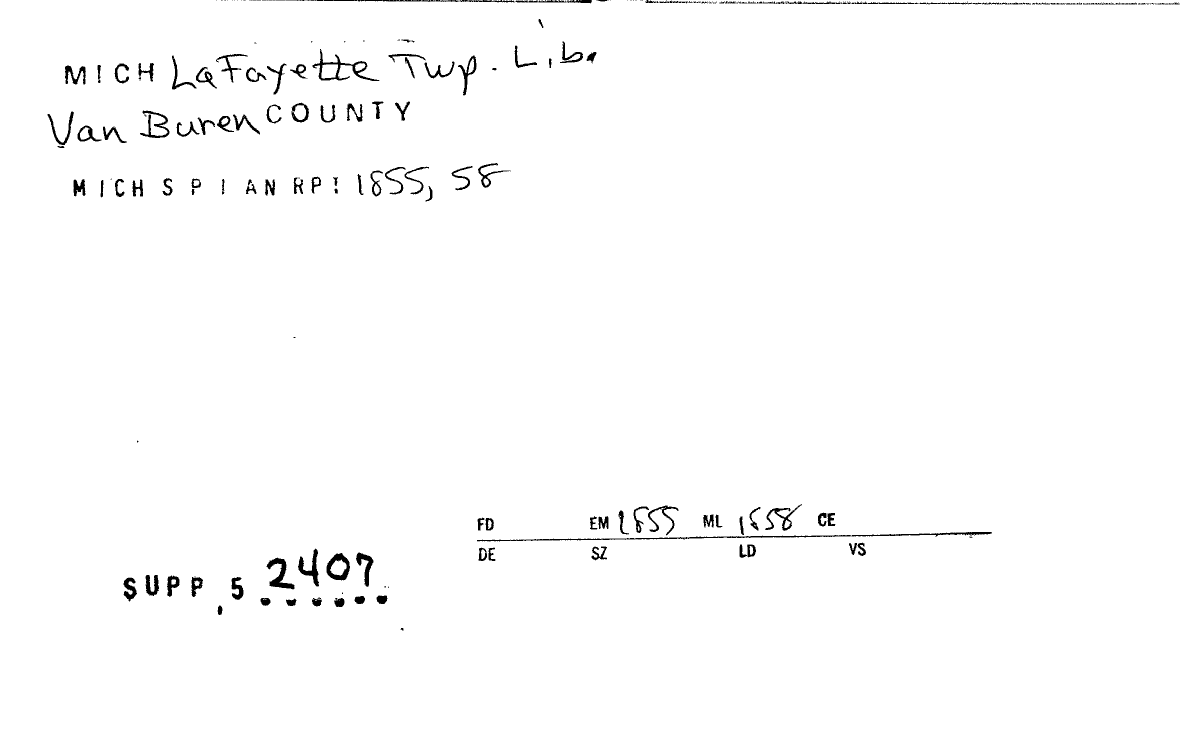 MICH LaFayette Twp. Lib.
Van Buren COUNTY
MICH S P I AN RPT 1855, 58
FD EM 1855 ML 1858 CE
DE SZ LD VS
SUPP, 5 2407